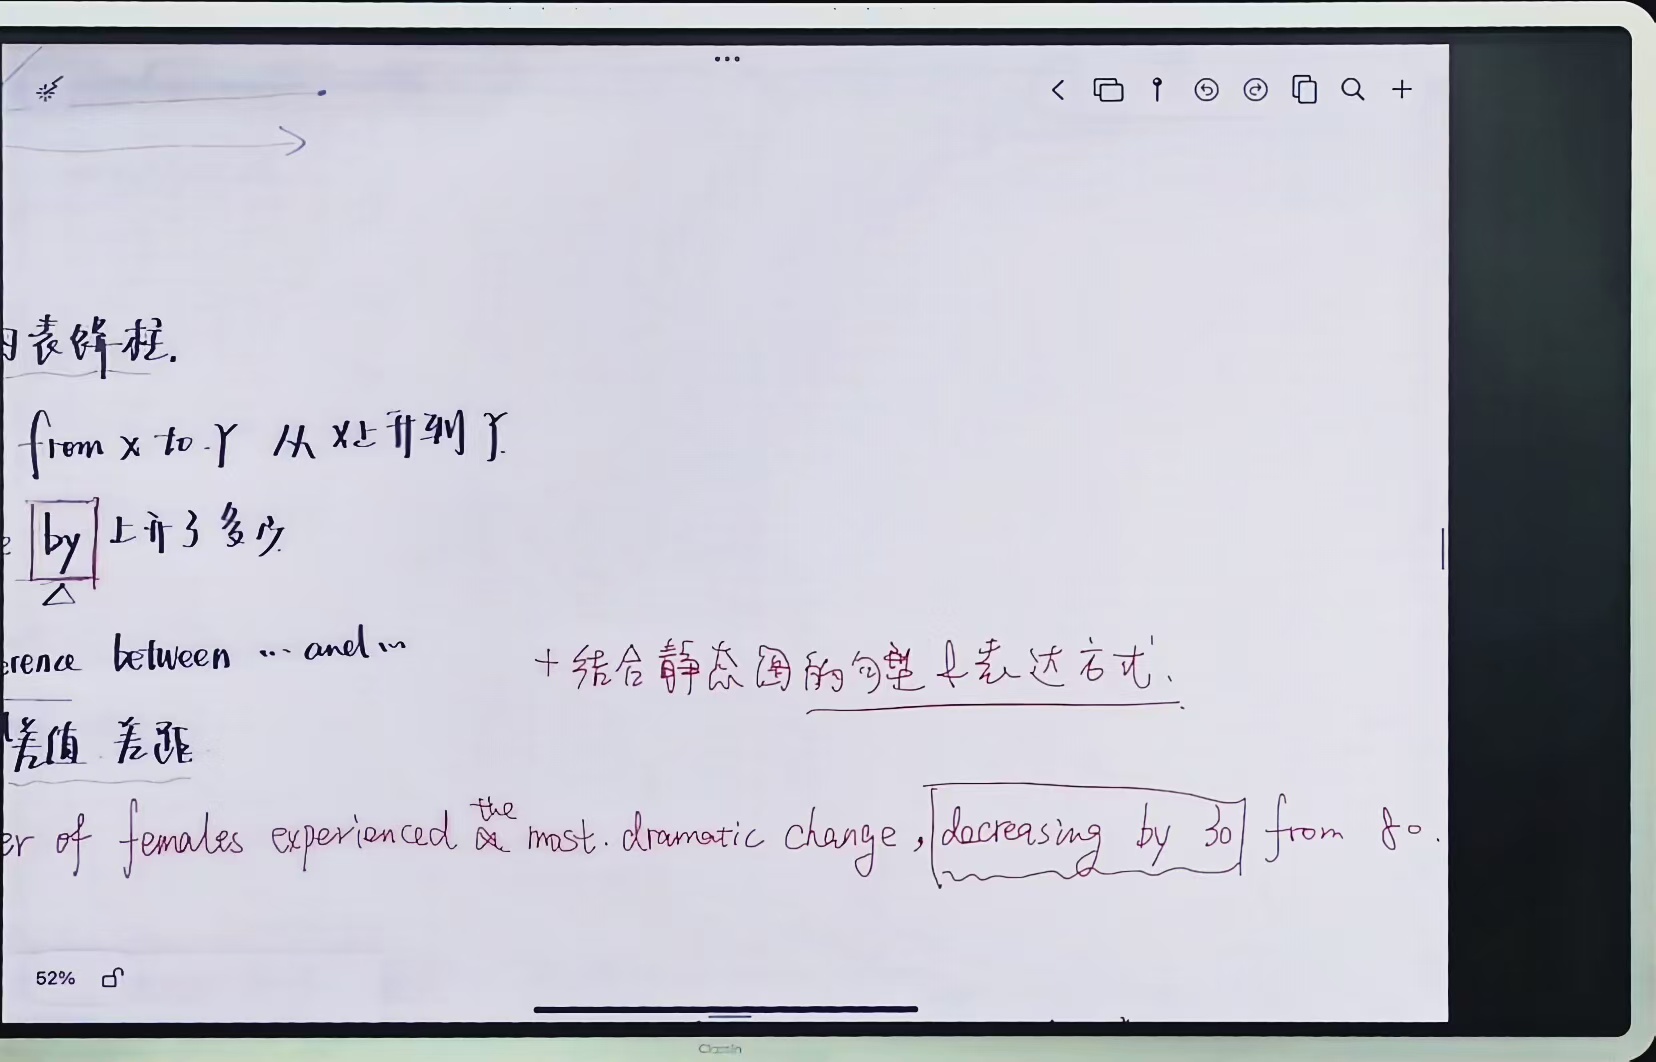 表饼柱.
from x to Y 从 X上升到 Y.
by 上升了多少
between ... and ...
+ 结合静态图的句型及表达方式.
差值 差距
of females experienced the most. dramatic change, decreasing by 30 from 80.
52%